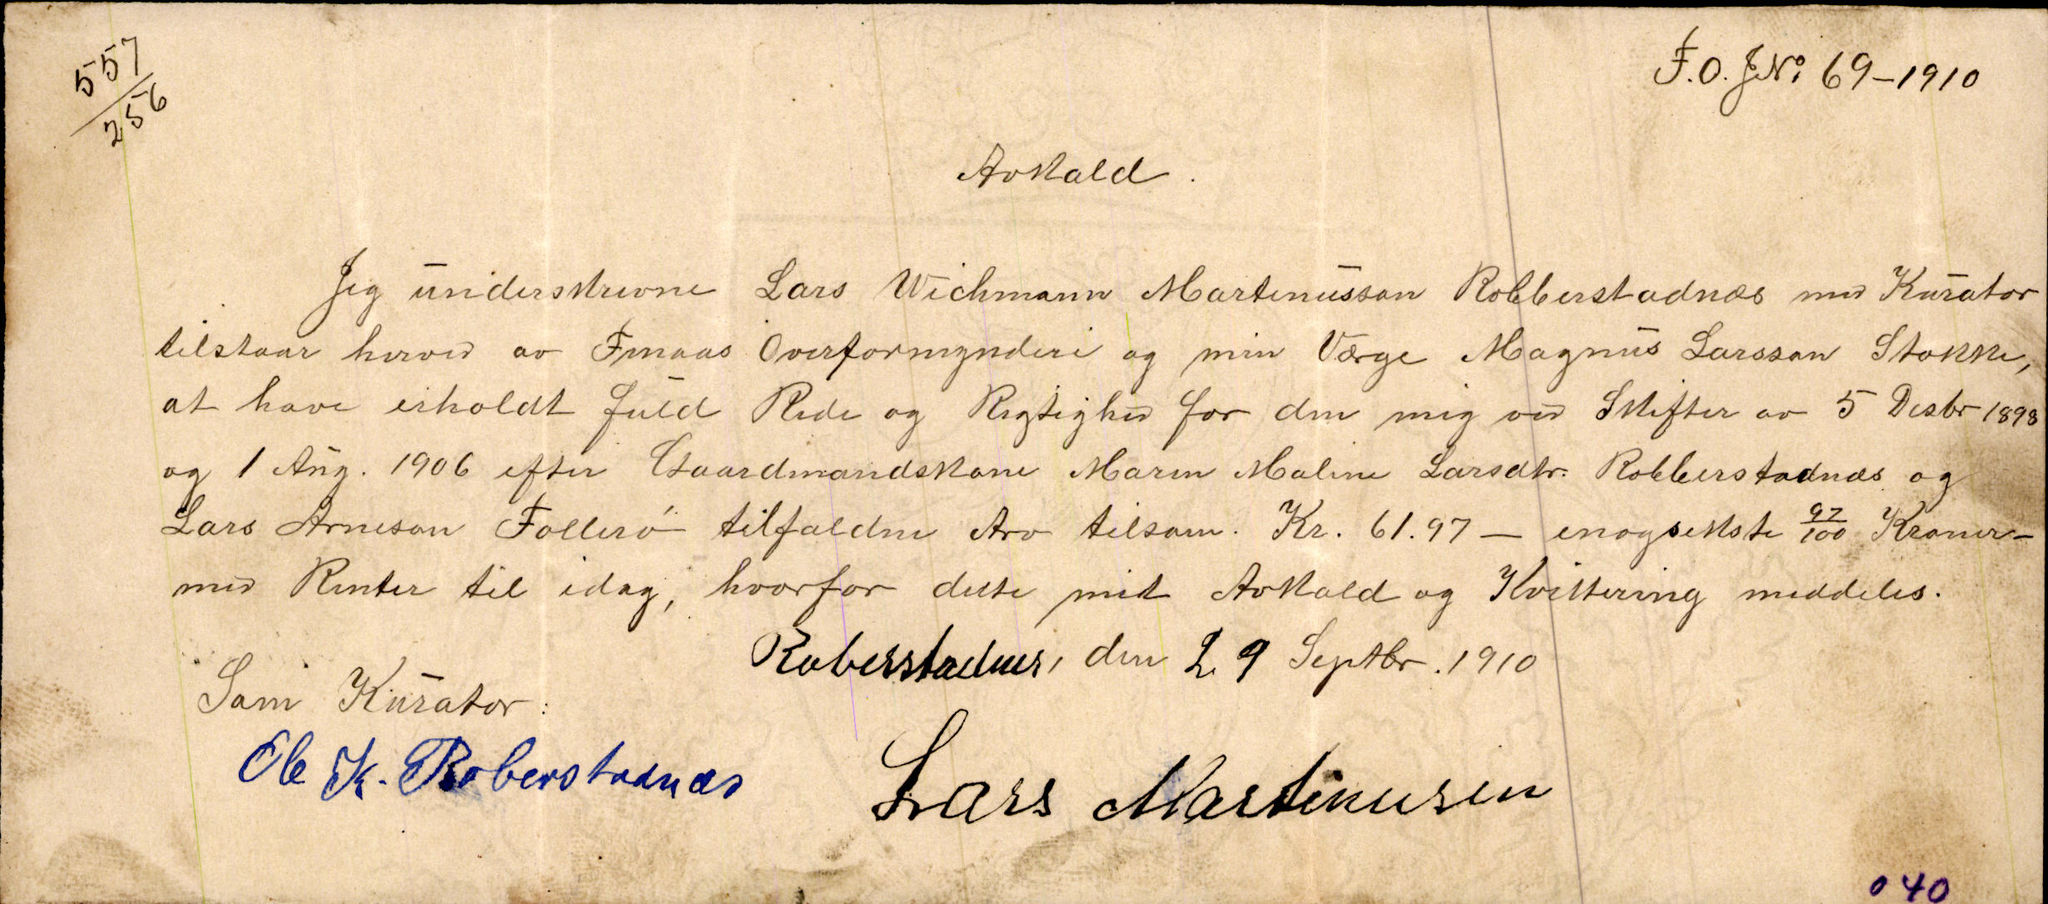 557
256
F.O. J.No 69-1910
Avkald.
Jeg underskrevne Lars Wichmann Martinusson Robberstadnæs med Kurator
tilstaar herved av Finaas Overformynderi og min Værge Magnus Larsson Stokke,
at have erholdt fuld Rede og Rigtighed for den mig ved Skifter av 5 Desbr 1898
og 1 Aug. 1906 efter Gaardmandskone Maren Maline Larsdtr. Robberstadnæs og
Lars Arneson Follesö tilfaldne Arv tilsam. Kr. 61.97 — enogseksti 97/100 Kroner—
med Renter til idag, hvorfor dette mit Avkald og Kvittering meddeles.
Roberstadnes, den 29 Septbr. 1910
Som Kurator:
Ole K. Roberstadnæs
Lars Martinusen
040